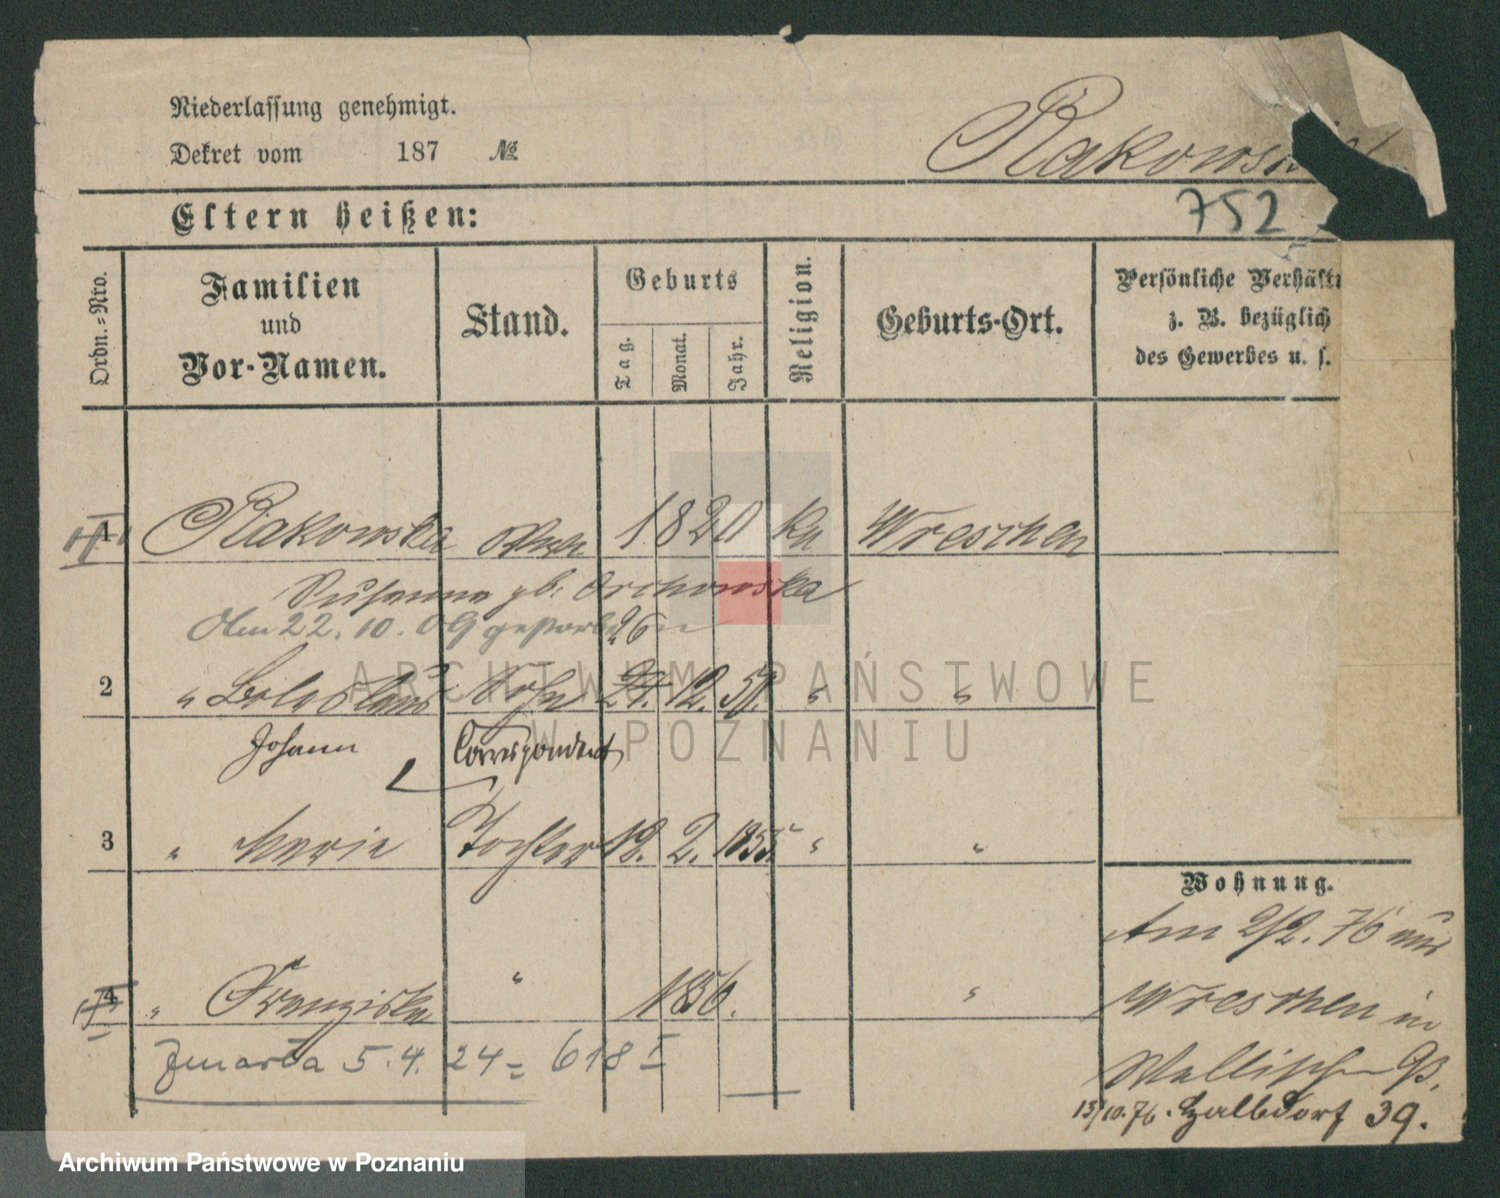 Niederlassung genehmigt.
Dekret vom 187 №
Rakowski
752
Eltern heißen:
Ordn.-Nro.
Familien
und
Vor-Namen.
Stand.
Geburts
Tag.
Monat.
Jahr.
Religion.
Geburts-Ort.
Persönliche Verhältn
z. B. bezüglich
des Gewerbes u. s.
1 Rakowska 1820 ka Wreschen
Susanna gb. Orchowska
Am 22. 10. 09 gestorben
26
2 " Boleslaus Sohn 24. 12. 51. " "
Johann Correspondent
3 " Marie Tochter 12. 2. 1855 " "
4 " Franziska " 1856. "
Zmarła 5.4.24 = 618 I
Wohnung.
Am 2/2. 76 aus
Wreschen in
Wallischei
13/10.76. Halbdorf 39.
ARCHIWUM PAŃSTWOWE
W POZNANIU
Archiwum Państwowe w Poznaniu